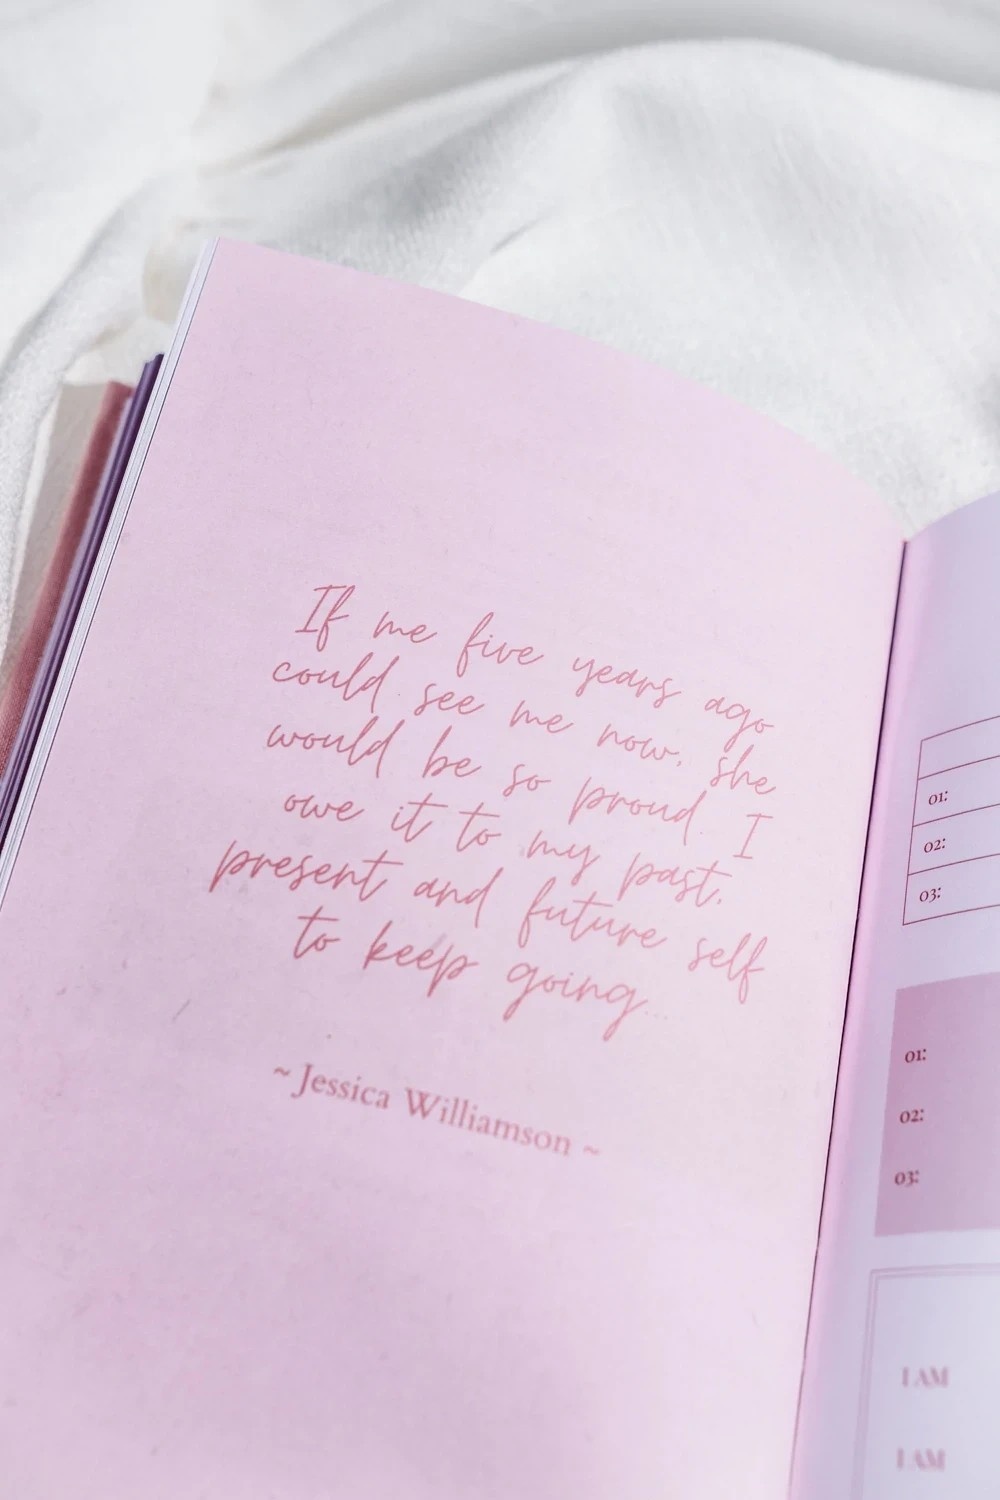 If me five years ago
could see me now, she
would be so proud. I
owe it to my past,
present and future self
to keep going...
~ Jessica Williamson ~
01:
02:
03:
01:
02:
03:
I AM
I AM